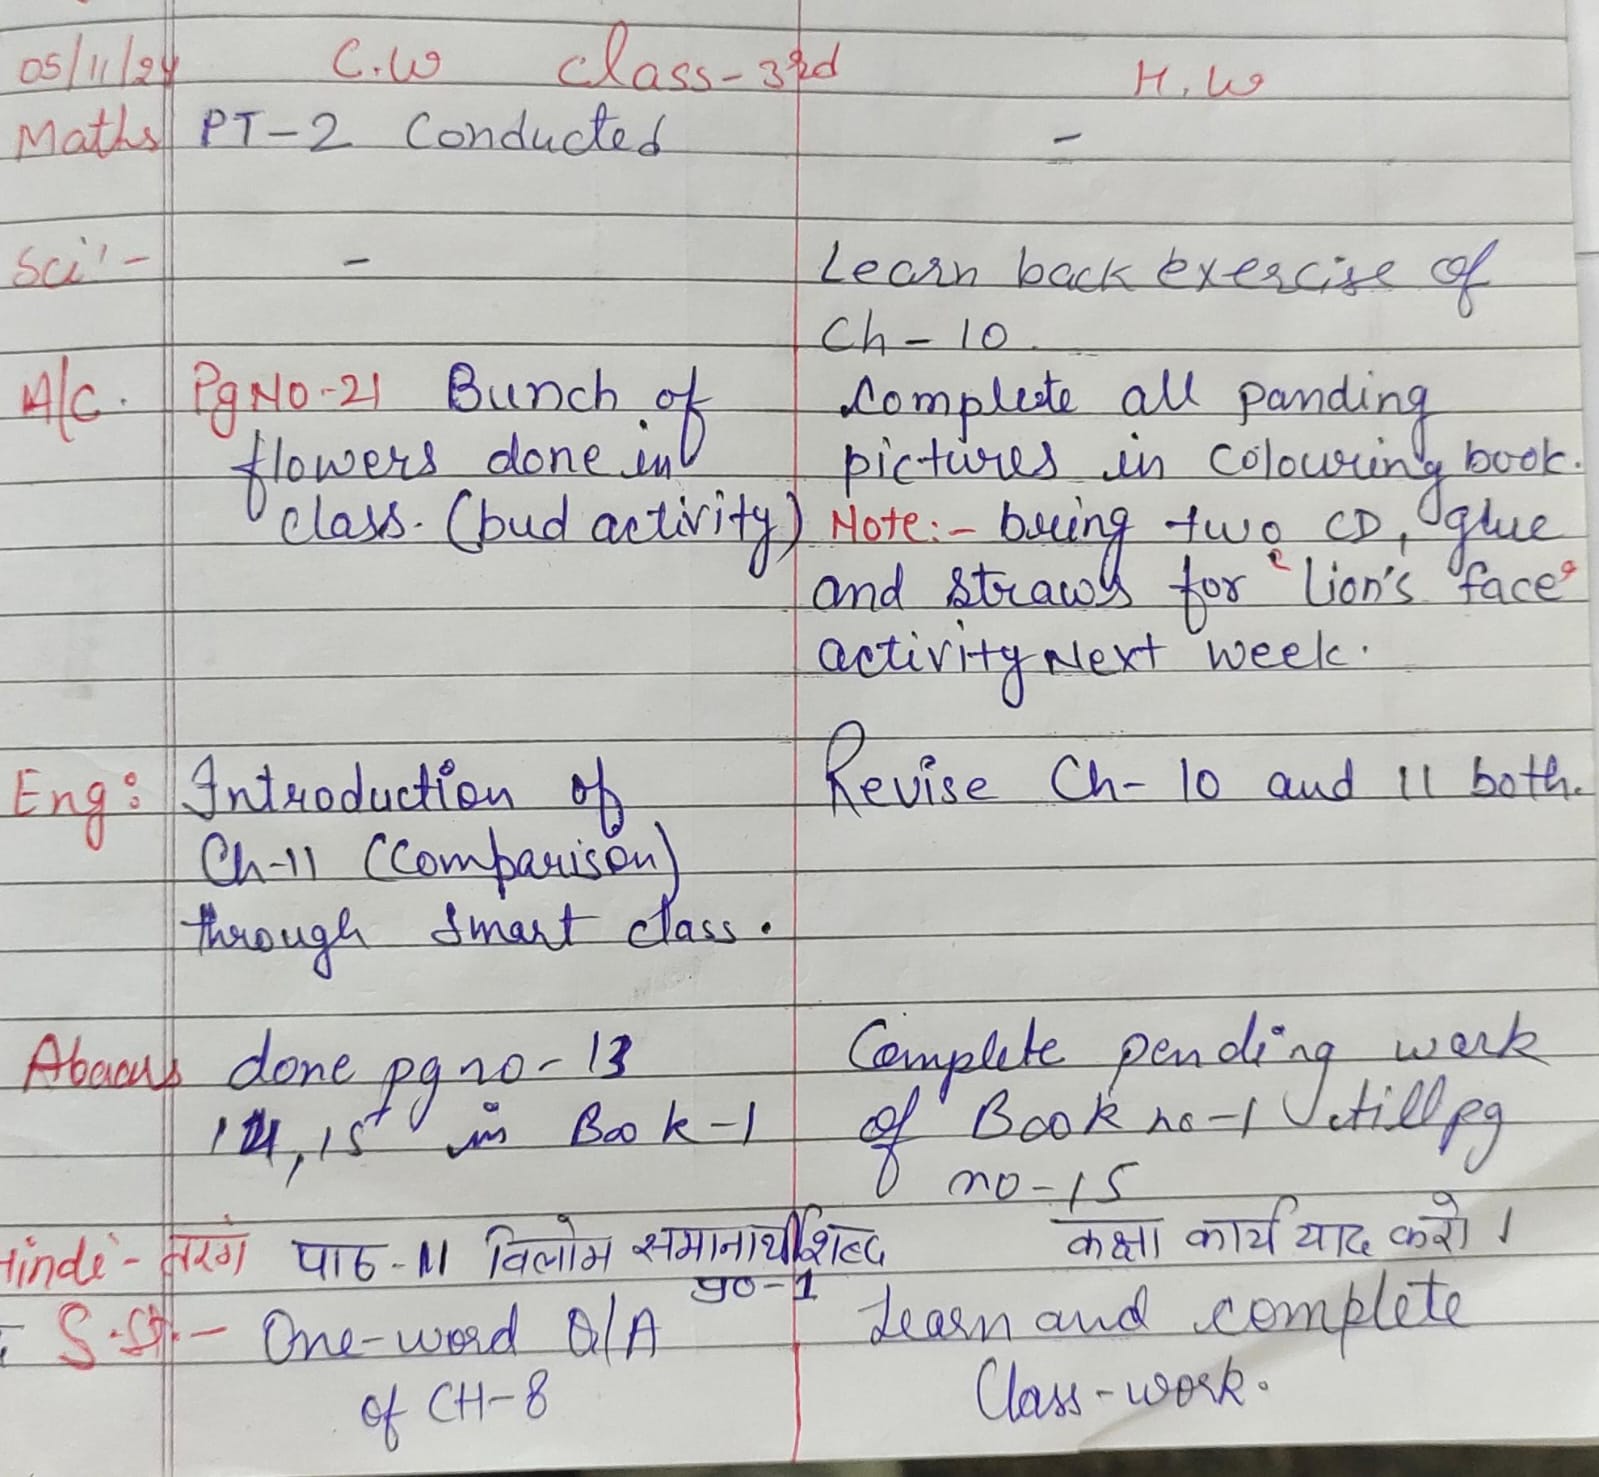 05/11/24 C.W class-3rd H.W
Maths PT-2 Conducted -
Sci'- - Learn back exercise of
Ch-10.
A/C. Pg No-21 Bunch of Complete all panding
flowers done in pictures in colouring book.
class. (bud activity) Note:- bring two CD, glue
and straws for "lion's face"
activity Next week.
Eng: Introduction of Revise Ch-10 and 11 both.
Ch-11 (Comparison)
through Smart class.
Abacus done pg no-13 Complete pending work
14, 15 in Book-1 of Book no-1 till pg
no-15
Hindi- तरंग पाठ-11 विलोम समानार्थी शब्द कक्षा कार्य याद करो।
पृ०-1
S.St.- One-word Q/A Learn and complete
of CH-8 Class-work.